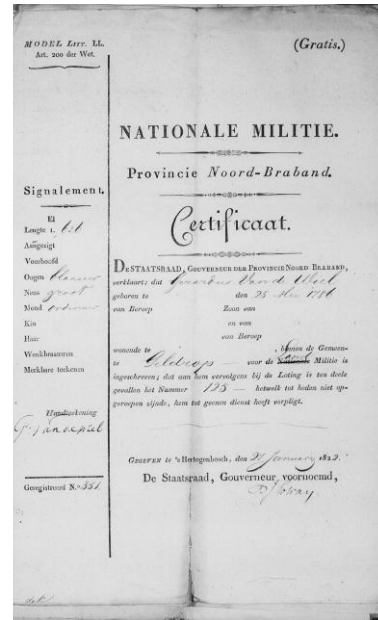 MODEL LITT. LL.
Art. 200 der Wet.
(Gratis.)
NATIONALE MILITIE.
Provincie Noord-Braband.
Certificaat.
Signalement.
El
Lengte 1.
Aangezigt
Voorhoofd
Oogen blauw
Neus groot
Mond
Kin
Haar
Wenkbraauwen
Merkbare teekenen
Handteekening
Geregistreerd N.º 351
DE STAATSRAAD, GOUVERNEUR DER PROVINCIE NOORD-BRABAND,
verklaart: dat
geboren te den 25 1786
van Beroep Zoon van
en van
van Beroep
wonende te , binnen de Gemeen-
te Geldrop voor de Nationale Militie is
ingeschreven; dat aan hem vervolgens bij de Loting is ten deele
gevallen het Nummer 128 hetwelk tot heden niet op-
geroepen zijnde, hem tot geenen dienst heeft verpligt.
GEGEVEN te 's Hertogenbosch, den January 182
De Staatsraad, Gouverneur voornoemd,